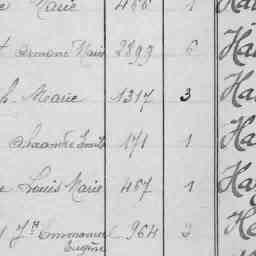 Marie 466 1 Ha
Armand Marie 2899 6 Ha
h. Marie 1317 3 Ha
Alexandre Emile 171 1 Ha
e Louis Marie 467 1 Ha
Jh Emmanuel Eugène 964 2 He